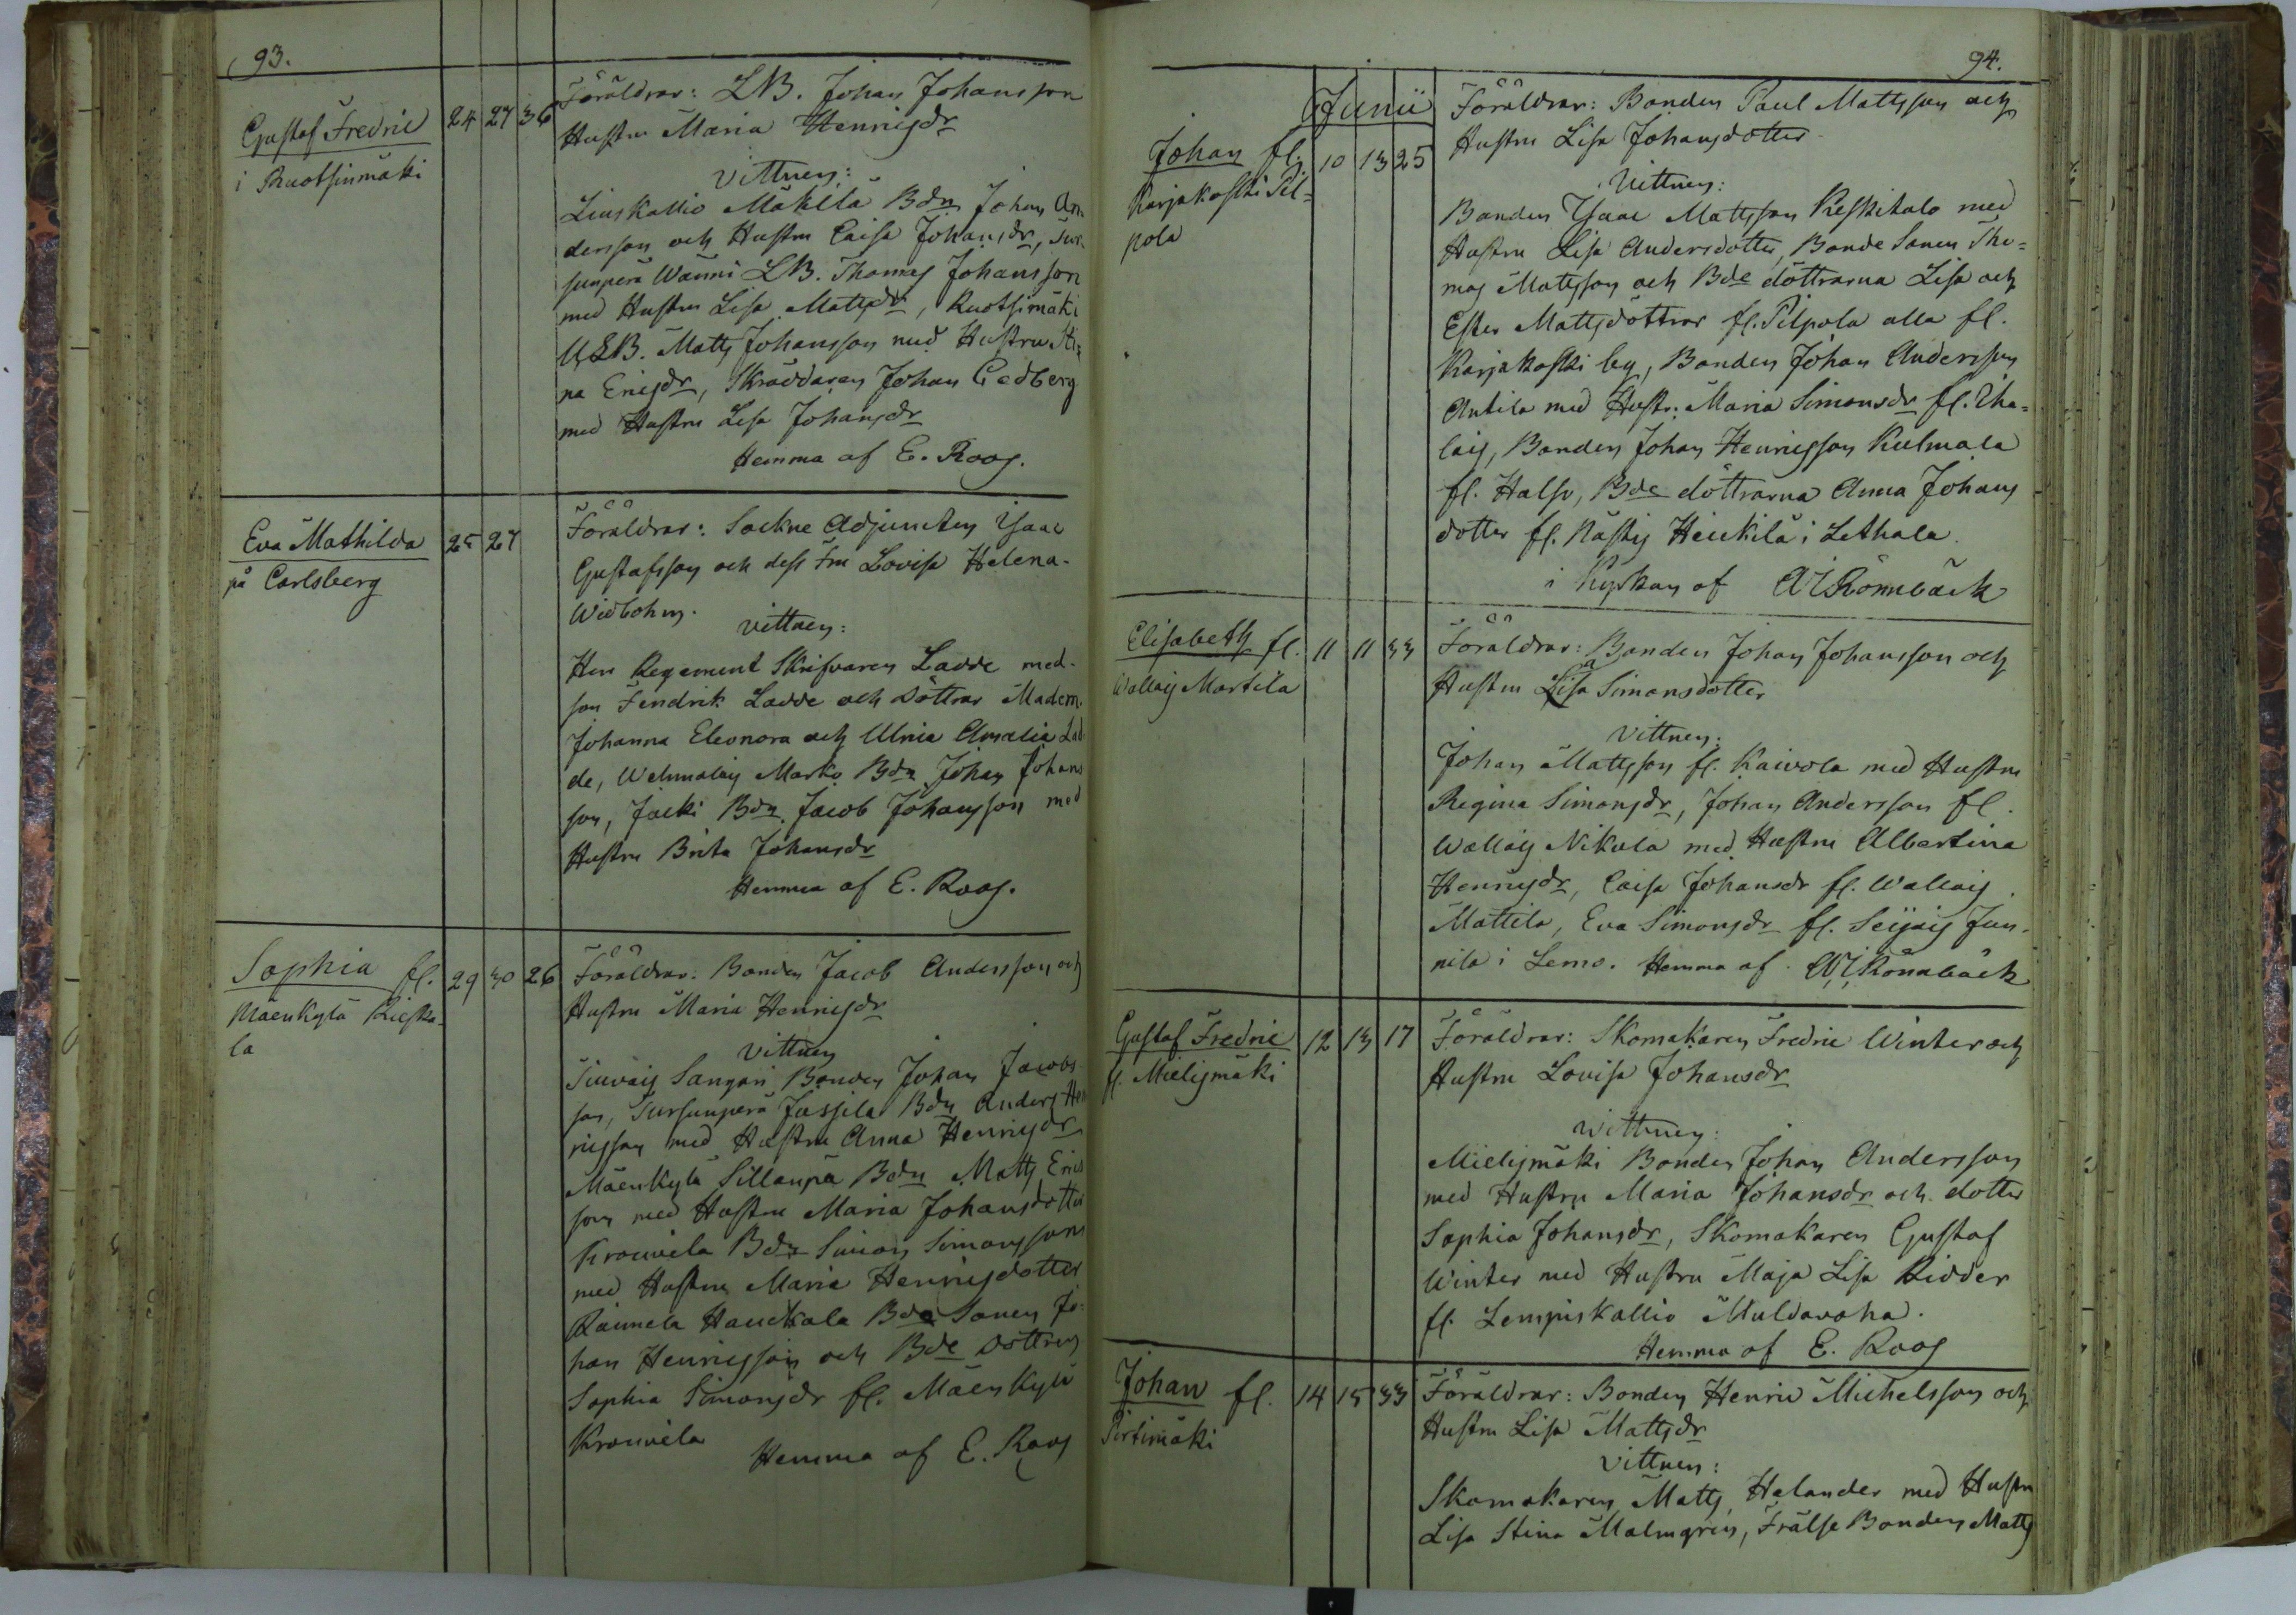 93.
Gustaf Fredric
i Ruotsinmäki
24 27 36
Föräldrar: LB. Johan Johansson
Hustru Maria Henricsdr
Vittnen:
Liuskallio Mäkilä Bdn Johan An-
dersson och Hustru Caisa Johansdr, Tur-
sunperä Wänni LB. Thomas Johansson
med Hustru Lisa Mattsdr, Ruotsimäki
LB. Matts Johansson med Hustru Sti-
na Ericsdr, Skräddaren Johan Cedberg
med Hustru Lisa Johansdr
Hemma af E. Roos.
Eva Mathilda
på Carlsberg
25 27
Föräldrar: Sockne Adjuncten Isaac
Gustafsson och dess Fru Lovisa Helena
Widbohm.
Vittnen:
Herr Regement Skrifvaren Ladde med
son Fendrik Ladde och döttrar Madem.
Johanna Eleonora och Ulrica Amalia Lad-
de, Wehmalais Marko Bdn Johan Johans
son, Jäcki Bdn Jacob Johansson med
Hustru Brita Johansdr
Hemma af E. Roos.
Sophia fl.
Mäenkylä Rieska-
la
29 30 26
Föräldrar: Bonden Jacob Andersson och
Hustru Maria Henricsdr
Vittnen
Sangari Bonden Johan Jacobs-
son, Tursunperä Jussila Bdn Anders Hen
ricsson med Hustru Anna Henricsdr
Mäenkylä Sillanpä Bdn Matts Erics
son med Hustru Maria Johansdotter
Krouvila Bdn Simon Simonsson
med Hustru Maria Henricsdotter
Raimela Hauckala Bde Sonen Jo-
han Henricsson och Bde Dottren
Sophia Simonsdr fl. Mäenkylä
Krouvila
Hemma af E. Roos
94.
Junii
Johan fl.
Karjakoski Pil-
pola
10 13 25
Föräldrar: Bonden Paul Mattsson och
Hustru Lisa Johansdotter
Vittnen:
Bonden Isaac Mattsson Keskitalo med
Hustru Lisa Andersdotter, Bonde Sonen Tho-
mas Mattsson och Bde döttrarna Lisa och
Ester Mattsdöttrar fl. Pilpola alla fl.
Karjakoski by, Bonden Johan Andersson
Antila med Hustr: Maria Simonsdr fl. Iha-
lais, Bonden Johan Henricsson Kulmala
fl. Halso, Bde döttrarna Anna Johans
dotter fl. Nästis Heickilä i Lethala.
i Kyrkan af AI Rönnbäck
Elisabeth fl.
Wallais Martila
11 11 33
Föräldrar: Bonden Johan Johansson och
Hustru Lisa Simonsdotter
Vittnen:
Johan Mattsson fl. Kaivola med Hustru
Regina Simonsdr, Johan Andersson fl.
Wallais Nikula med Hustru Albertina
Henricsdr, Caisa Johansdr fl. Wallais
Mattila, Eva Simonsdr fl. Seijais Jun-
nila i Lemo. Hemma af AI Rönnbäck
Gustaf Fredric
fl. Mielismäki
12 13 17
Föräldrar: Skomakaren Fredric Winter och
Hustru Lovisa Johansdr
Wittnen:
Mielismäki Bonden Johan Andersson
med Hustru Maria Johansdr och dotter
Sophia Johansdr, Skomakaren Gustaf
Winter med Hustru Maja Lisa Ridder
fl. Lempiskallio Muldavaha.
Hemma af E. Roos
Johan fl.
Pirtimäki
14 15 33
Föräldrar: Bonden Henric Michelsson och
Hustru Lisa Mattsdr
Vittnen:
Skomakaren Matts Helander med Hustru
Lisa Stina Malmgren, Frälse Bonden Matts